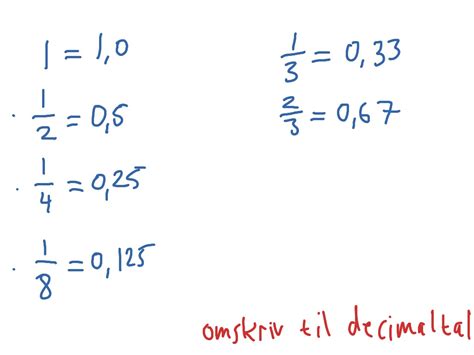 1 = 1,0
· 1/2 = 0,5
· 1/4 = 0,25
· 1/8 = 0,125
1/3 = 0,33
2/3 = 0,67
omskriv til decimaltal